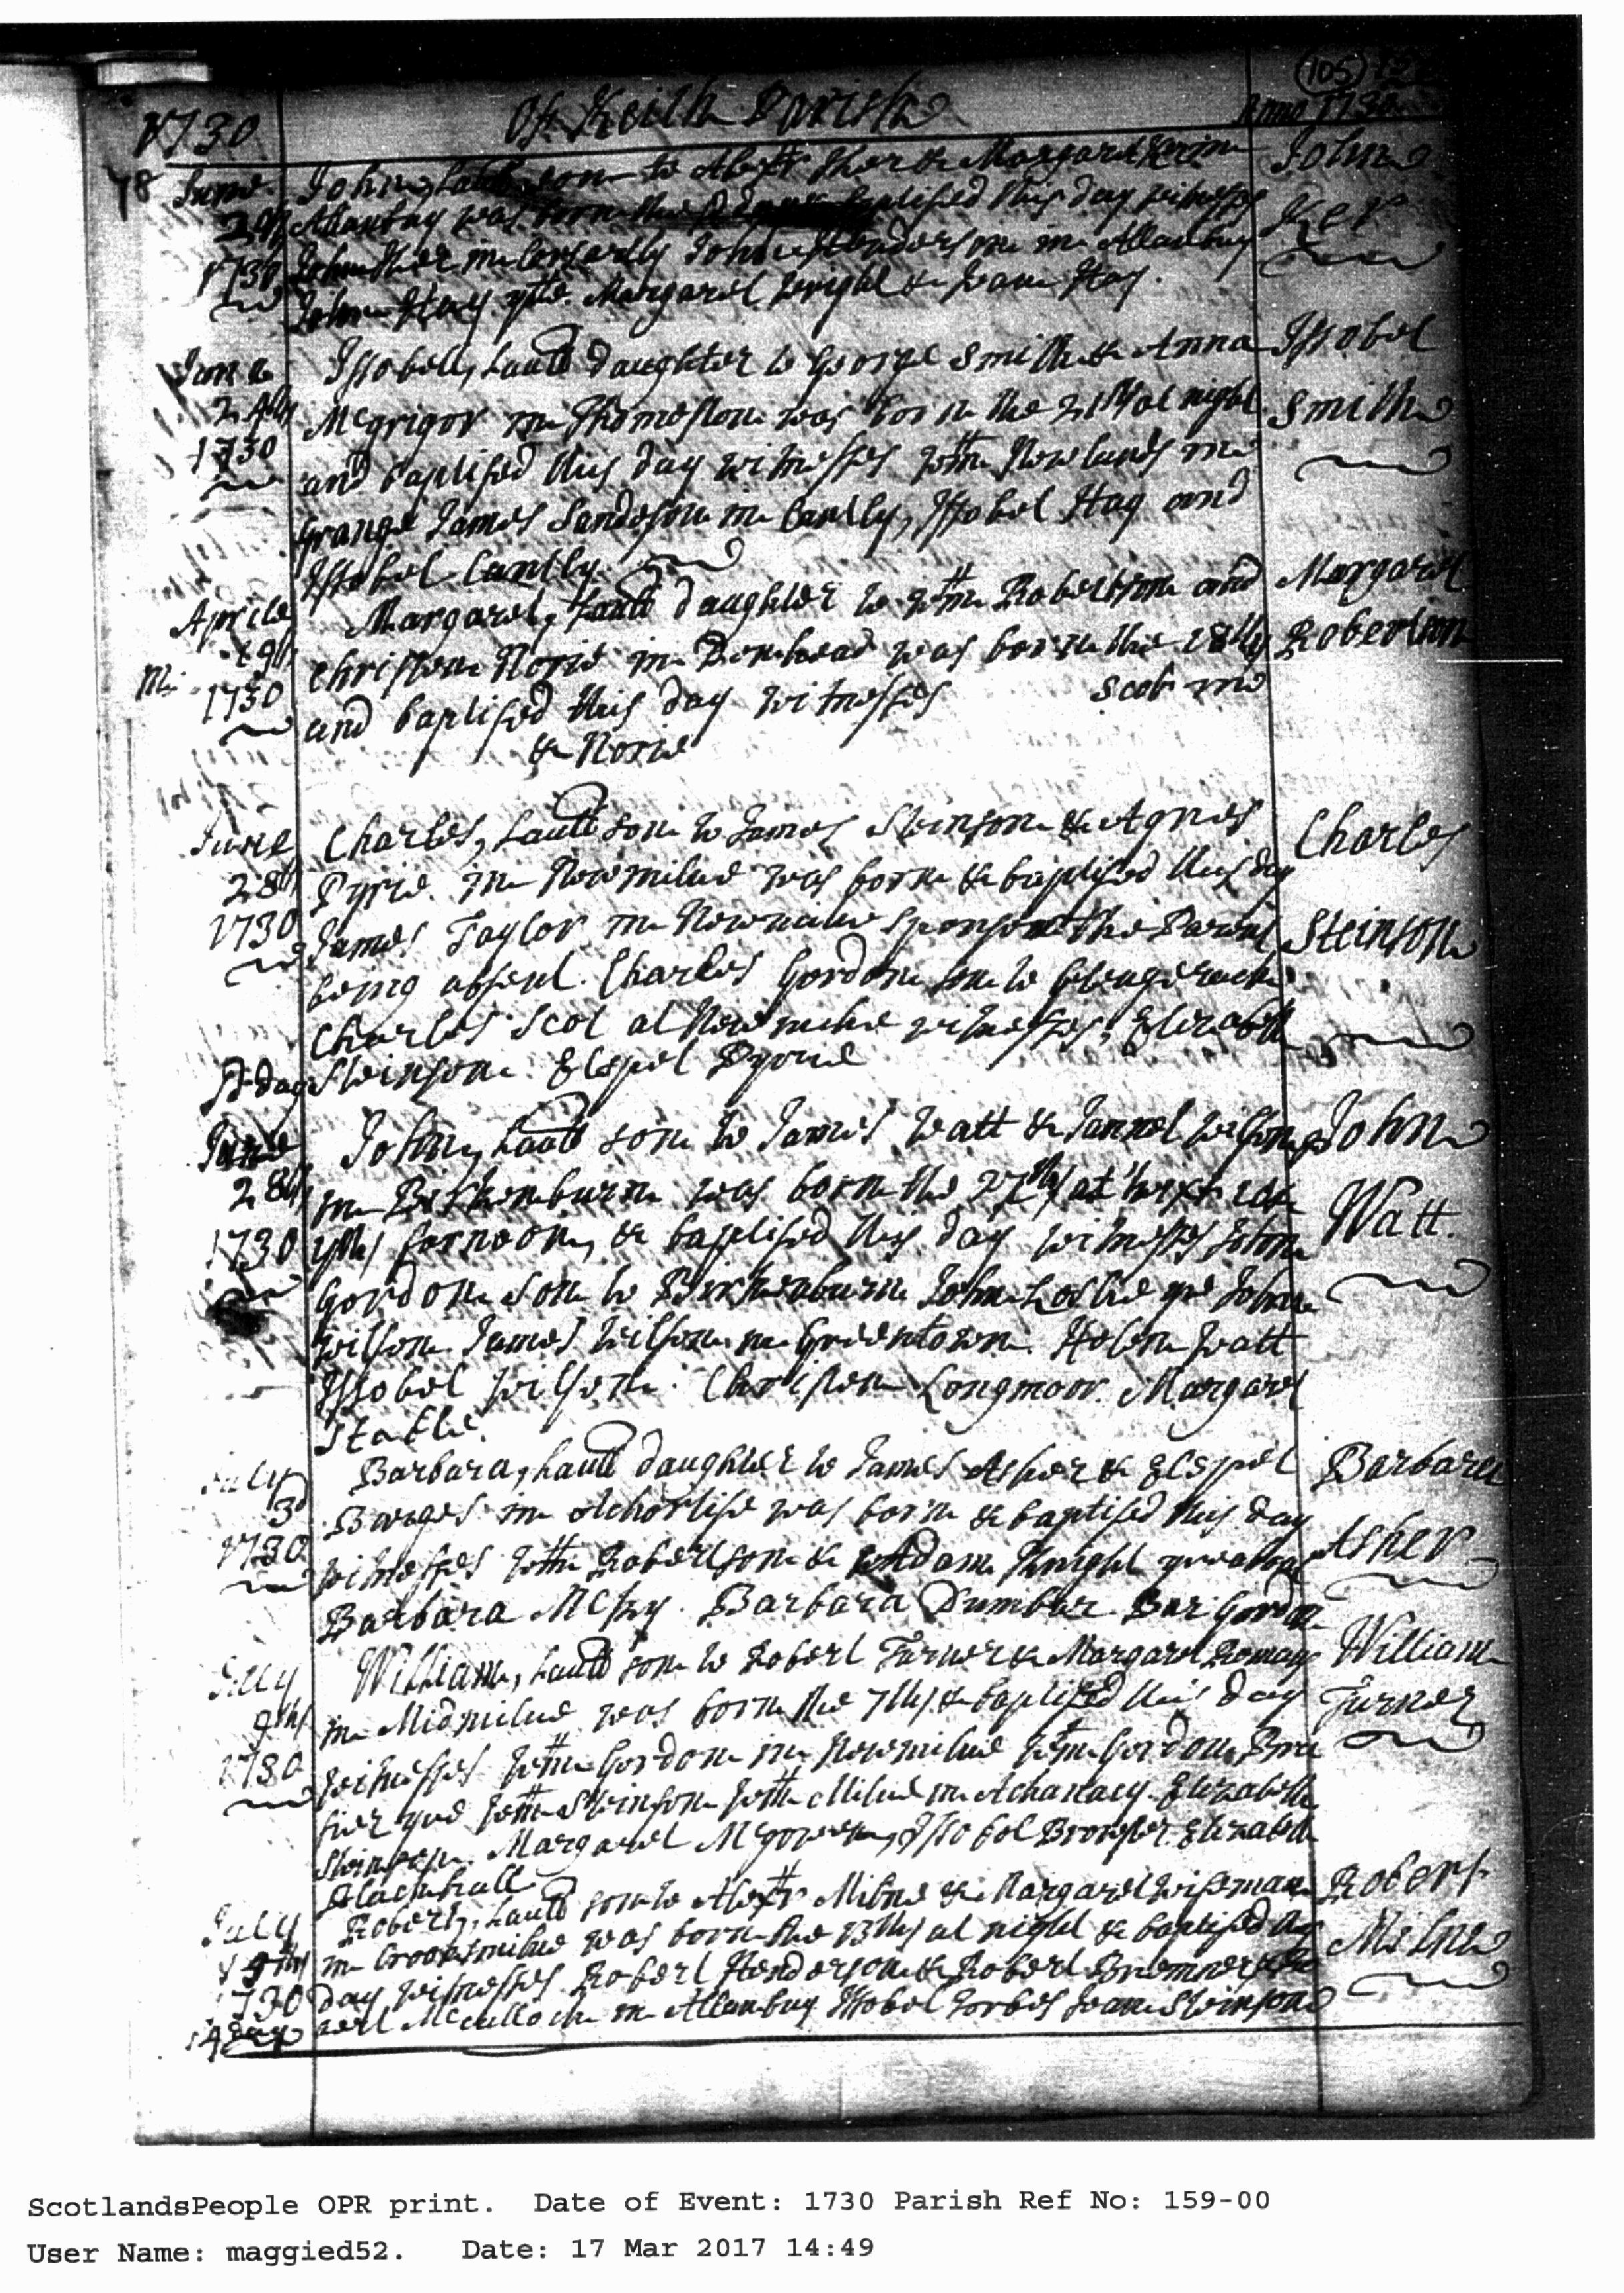 (105)
1730 Of Keith Parish Anno 1730
78 June John, son to Alexr Ker & Margaret John
24th was born baptised this day witnesses Ker
1730 John Ker in John in Allanbuy
John Hay Margaret Wright & Jean Hay.
June Issobell, Laull daughter to George Smith & Anna Issobel
24th Mcgrigor in Thomestoun was born the 21st at night Smith
1730 and baptised this day witnesses Wm Newlands in
Grange James Sandeson in Cantly, Issobel Hay and
Issobel Cantly.
Aprile Margaret, Laull daughter to Wm Robertson and Margaret
19th Christian Norie in was born the 18th Robertson
1730 and baptised this day witnesses Scot in
& Norie
June Charles, Laull son to James Steinson & Agnes Charles
28th Pyrie in Newmilne was born & baptised this day
1730 James Taylor in Newmilne sponsor the Parent Steinson
being absent. Charles Gordon son to Glengerack
Charles Scot at Newmilne witnesses, Elizabeth
Steinson. Elspet Pyrie
June John, Laull son to James Watt & Jannet Wilson John
28th in Birkenburn was born the 27th at
1730 fornoon, & baptised this day witnesses John Watt.
Gordon son to Birkenburn John Leslie yre John
Wilson James Wilson in Greentown. Helen Watt
Issobel Wilson. Christian Longmoor. Margaret
Stable.
July Barbara, Laull daughter to James Asher & Elspet Barbara
3d in was born & baptised this day
1730 witnesses Wm Robertson & Adam Knight Asher
Barbara McKy. Barbara Dumbar. Bar: Gordon
July William, Laull son to Robert Turner & Margaret William
9th in Midmilne was born the 7th & baptised this day Turner
1730 witnesses Wm Gordon in Newmilne Wm Gordon
yre Wm Steinson Wm Milne in Achanacy. Elizabeth
Steinson. Margaret Issobel Brouster. Elizabeth
Blackhall
July Robert, Laull son to Alexr Milne & Margaret Wiseman Robert
14th in Crooksmilne was born the 13th at night & baptised this Milne
1730 day witnesses. Robert Henderson & Robert Bremner
Mcculloch in Allanbuy Issobel Forbes Jean Steinson
ScotlandsPeople OPR print. Date of Event: 1730 Parish Ref No: 159-00
User Name: maggied52. Date: 17 Mar 2017 14:49